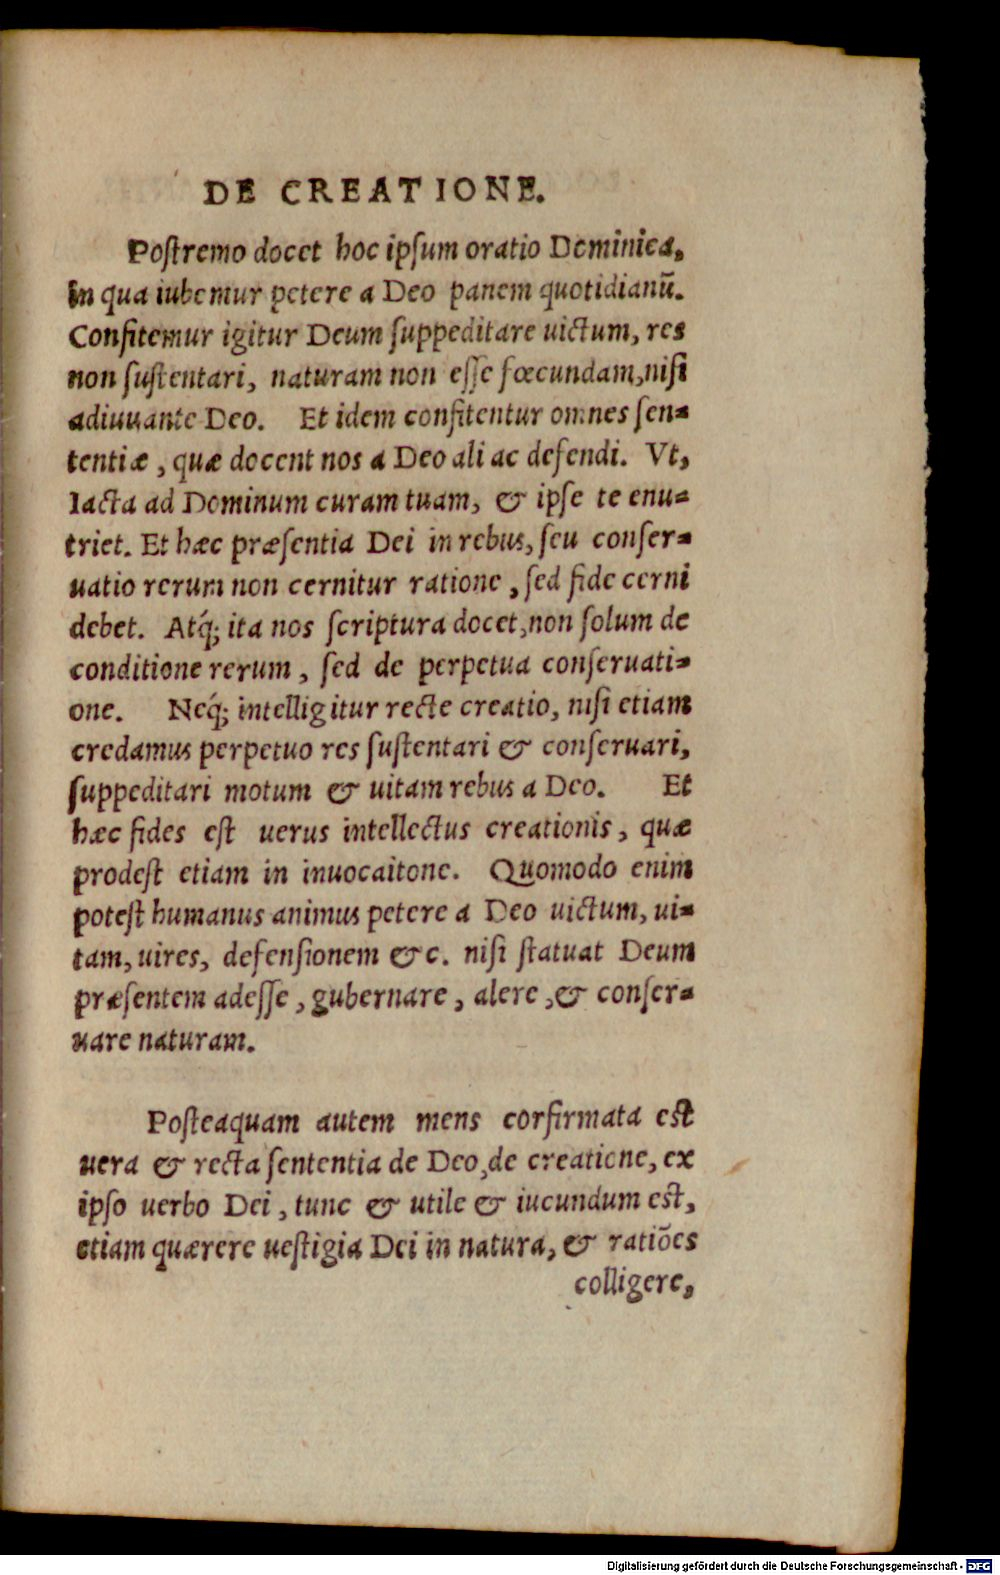 DE CREATIONE.
Postremo docet hoc ipsum oratio Dominica,
in qua iubemur petere a Deo panem quotidianū.
Confitemur igitur Deum suppeditare uictum, res
non sustentari, naturam non esse fœcundam, nisi
adiuuante Deo. Et idem confitentur omnes sen=
tentiæ, quæ docent nos a Deo ali ac defendi. Vt,
Iacta ad Dominum curam tuam, & ipse te enu=
triet. Et hæc præsentia Dei in rebus, seu conser=
uatio rerum non cernitur ratione, sed fide cerni
debet. Atq́; ita nos scriptura docet, non solum de
conditione rerum, sed de perpetua conseruati=
one. Neq́; intelligitur recte creatio, nisi etiam
credamus perpetuo res sustentari & conseruari,
suppeditari motum & uitam rebus a Deo. Et
hæc fides est uerus intellectus creationis, quæ
prodest etiam in inuocaitone. Quomodo enim
potest humanus animus petere a Deo uictum, ui=
tam, uires, defensionem &c. nisi statuat Deum
præsentem adesse, gubernare, alere, & conser=
uare naturam.
Posteaquam autem mens corfirmata est
uera & recta sententia de Deo, de creatione, ex
ipso uerbo Dei, tunc & utile & iucundum est,
etiam quærere uestigia Dei in natura, & ratiōes
colligere,
Digitalisierung gefördert durch die Deutsche Forschungsgemeinschaft - DFG